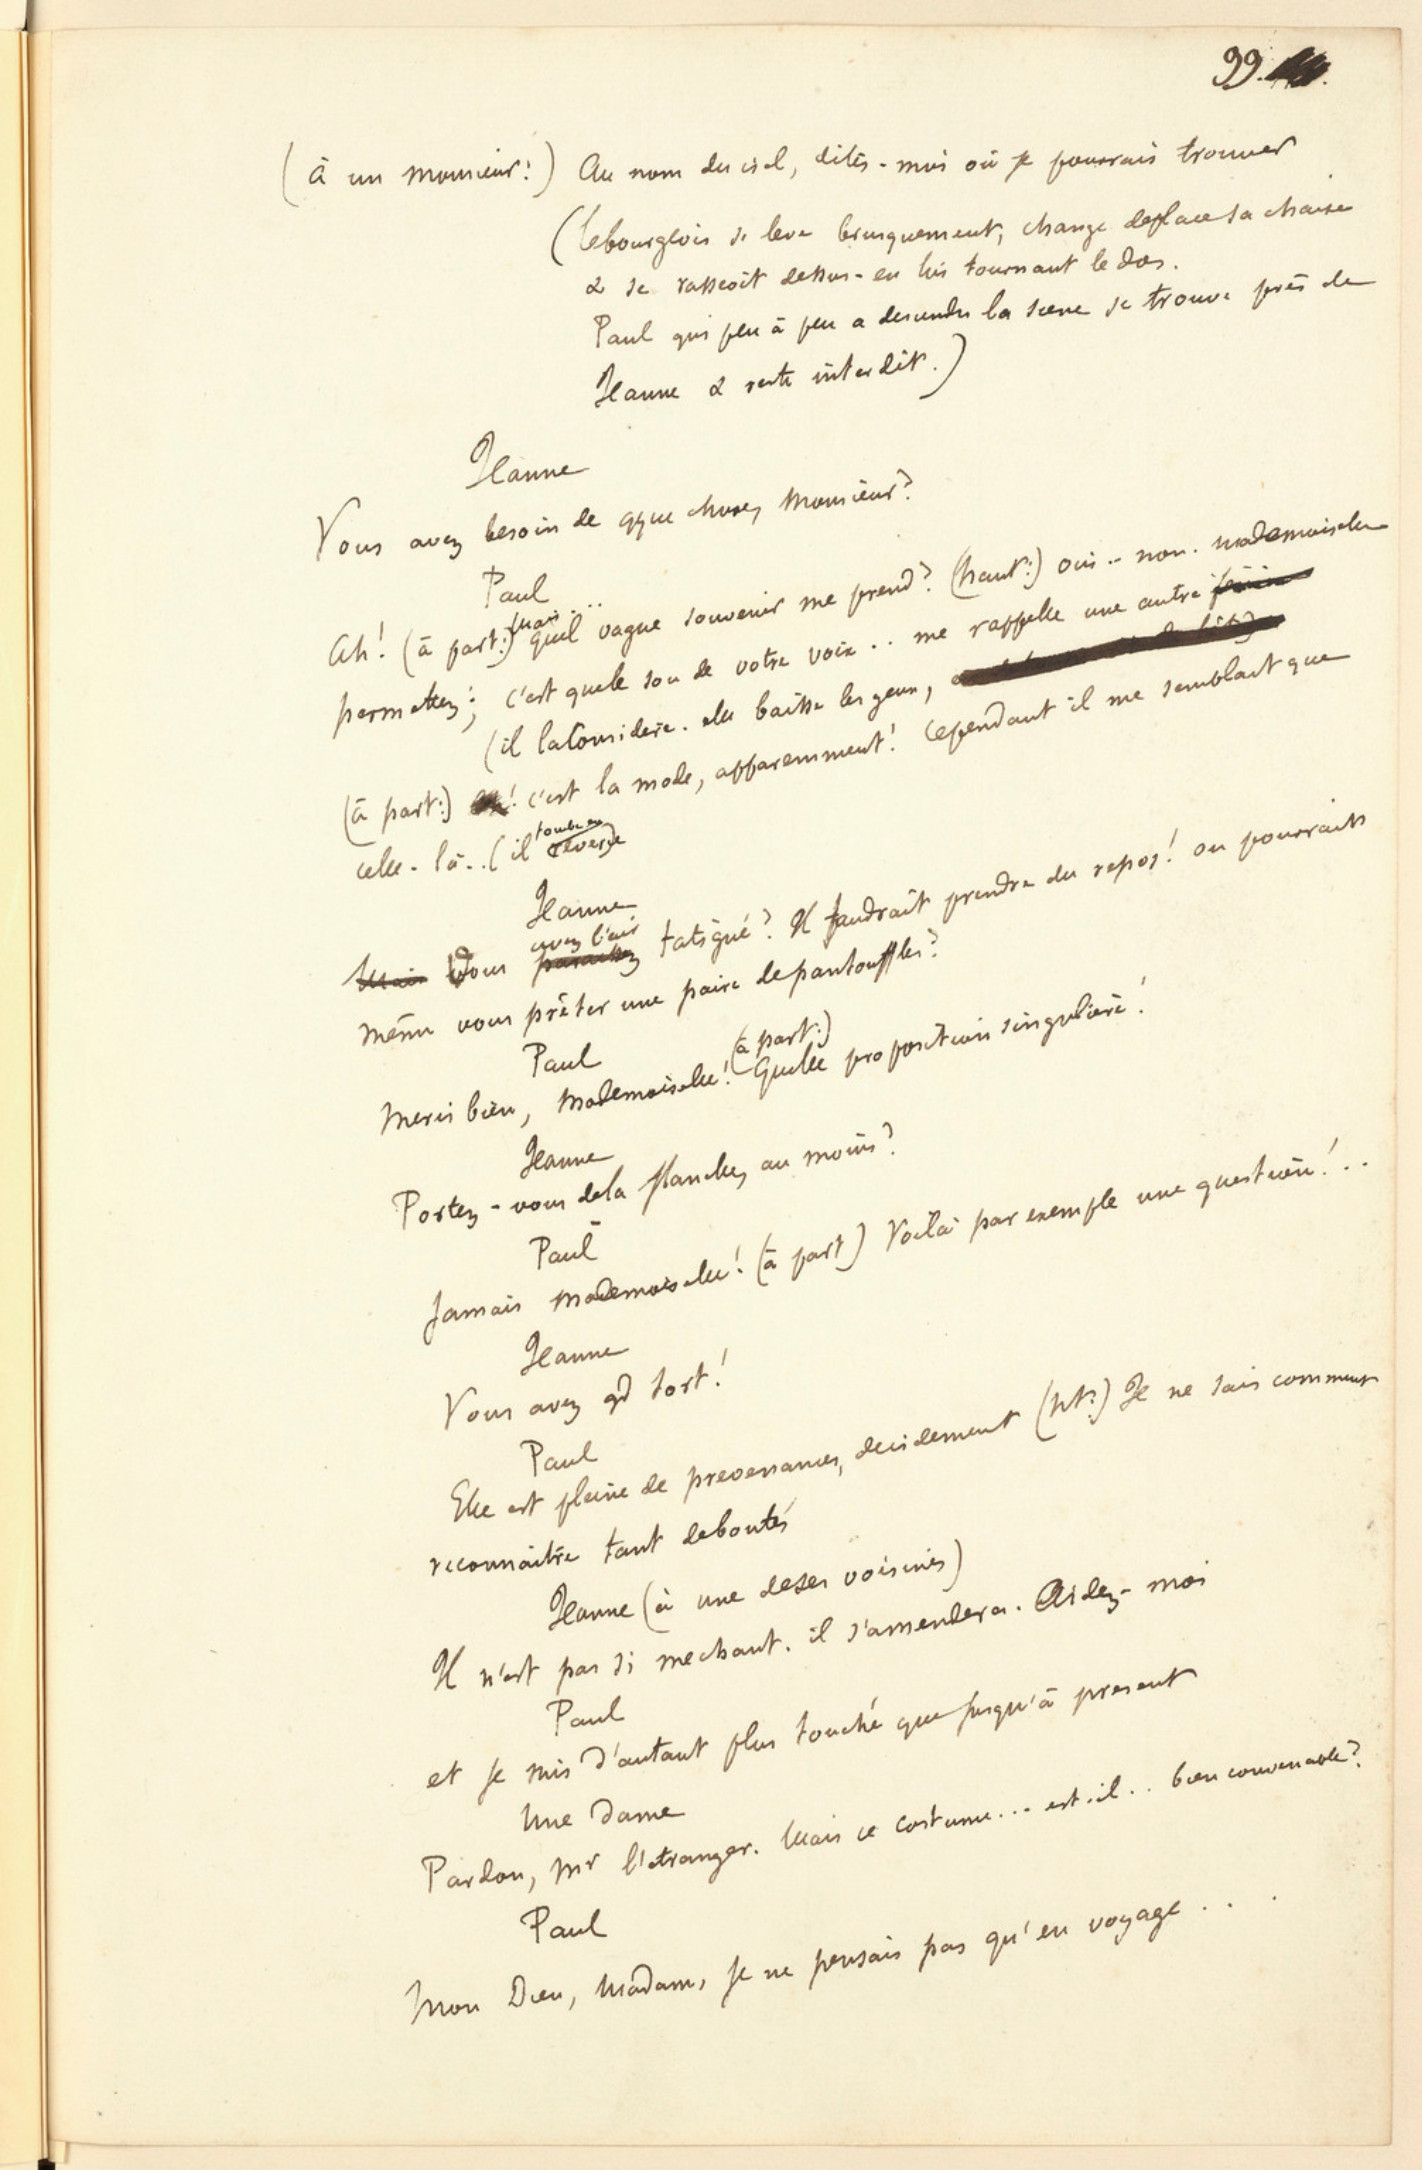 99.
(à un monsieur:) Au nom du ciel, dites-moi où je pourrais trouver
(le bourgeois se leve brusquement, change deplace sa chaise
& se rasseoit dessus - en lui tournant le dos.
Paul qui peu à peu a descendu la scene se trouve près de
Jeanne & reste interdit.)
Jeanne
Vous avez besoin de qque chose, Monsieur?
Paul
Ah! (à part:) Mais... quel vague souvenir me prend? (haut:) oui.. non. mademoiselle
permettez; c'est que le son de votre voix .. me rappelle une autre
(il la considere. elle baisse les yeux,
(à part:) c'est la mode, apparemment! Cependant il me semblait que
celle-là.. (il tombe en reverie
Jeanne
Mais Vous paraissez avez l'air fatigué? Il faudrait prendre du repos! on pourrait
même vous prêter une paire de pantouffles?
Paul
Merci bien, Mademoiselle! (à part:) Quelle proposition singulière!
Jeanne
Portez-vous de la flanelle, au moins?
Paul
Jamais Mademoiselle! (à part) Voilà par exemple une question!..
Jeanne
Vous avez gd tort!
Paul
Elle est pleine de prevenances, decidement (ht:) Je ne sais comment
reconnaître tant de bontés
Jeanne (à une de ses voisines)
Il n'est pas si mechant. il s'amendera. Aidez-moi
Paul
et je suis d'autant plus touché que jusqu'à present
Une Dame
Pardon, Mr l'etranger. Mais ce costume... est-il.. bien convenable?
Paul
Mon Dieu, Madame, je ne pensais pas qu'en voyage ...